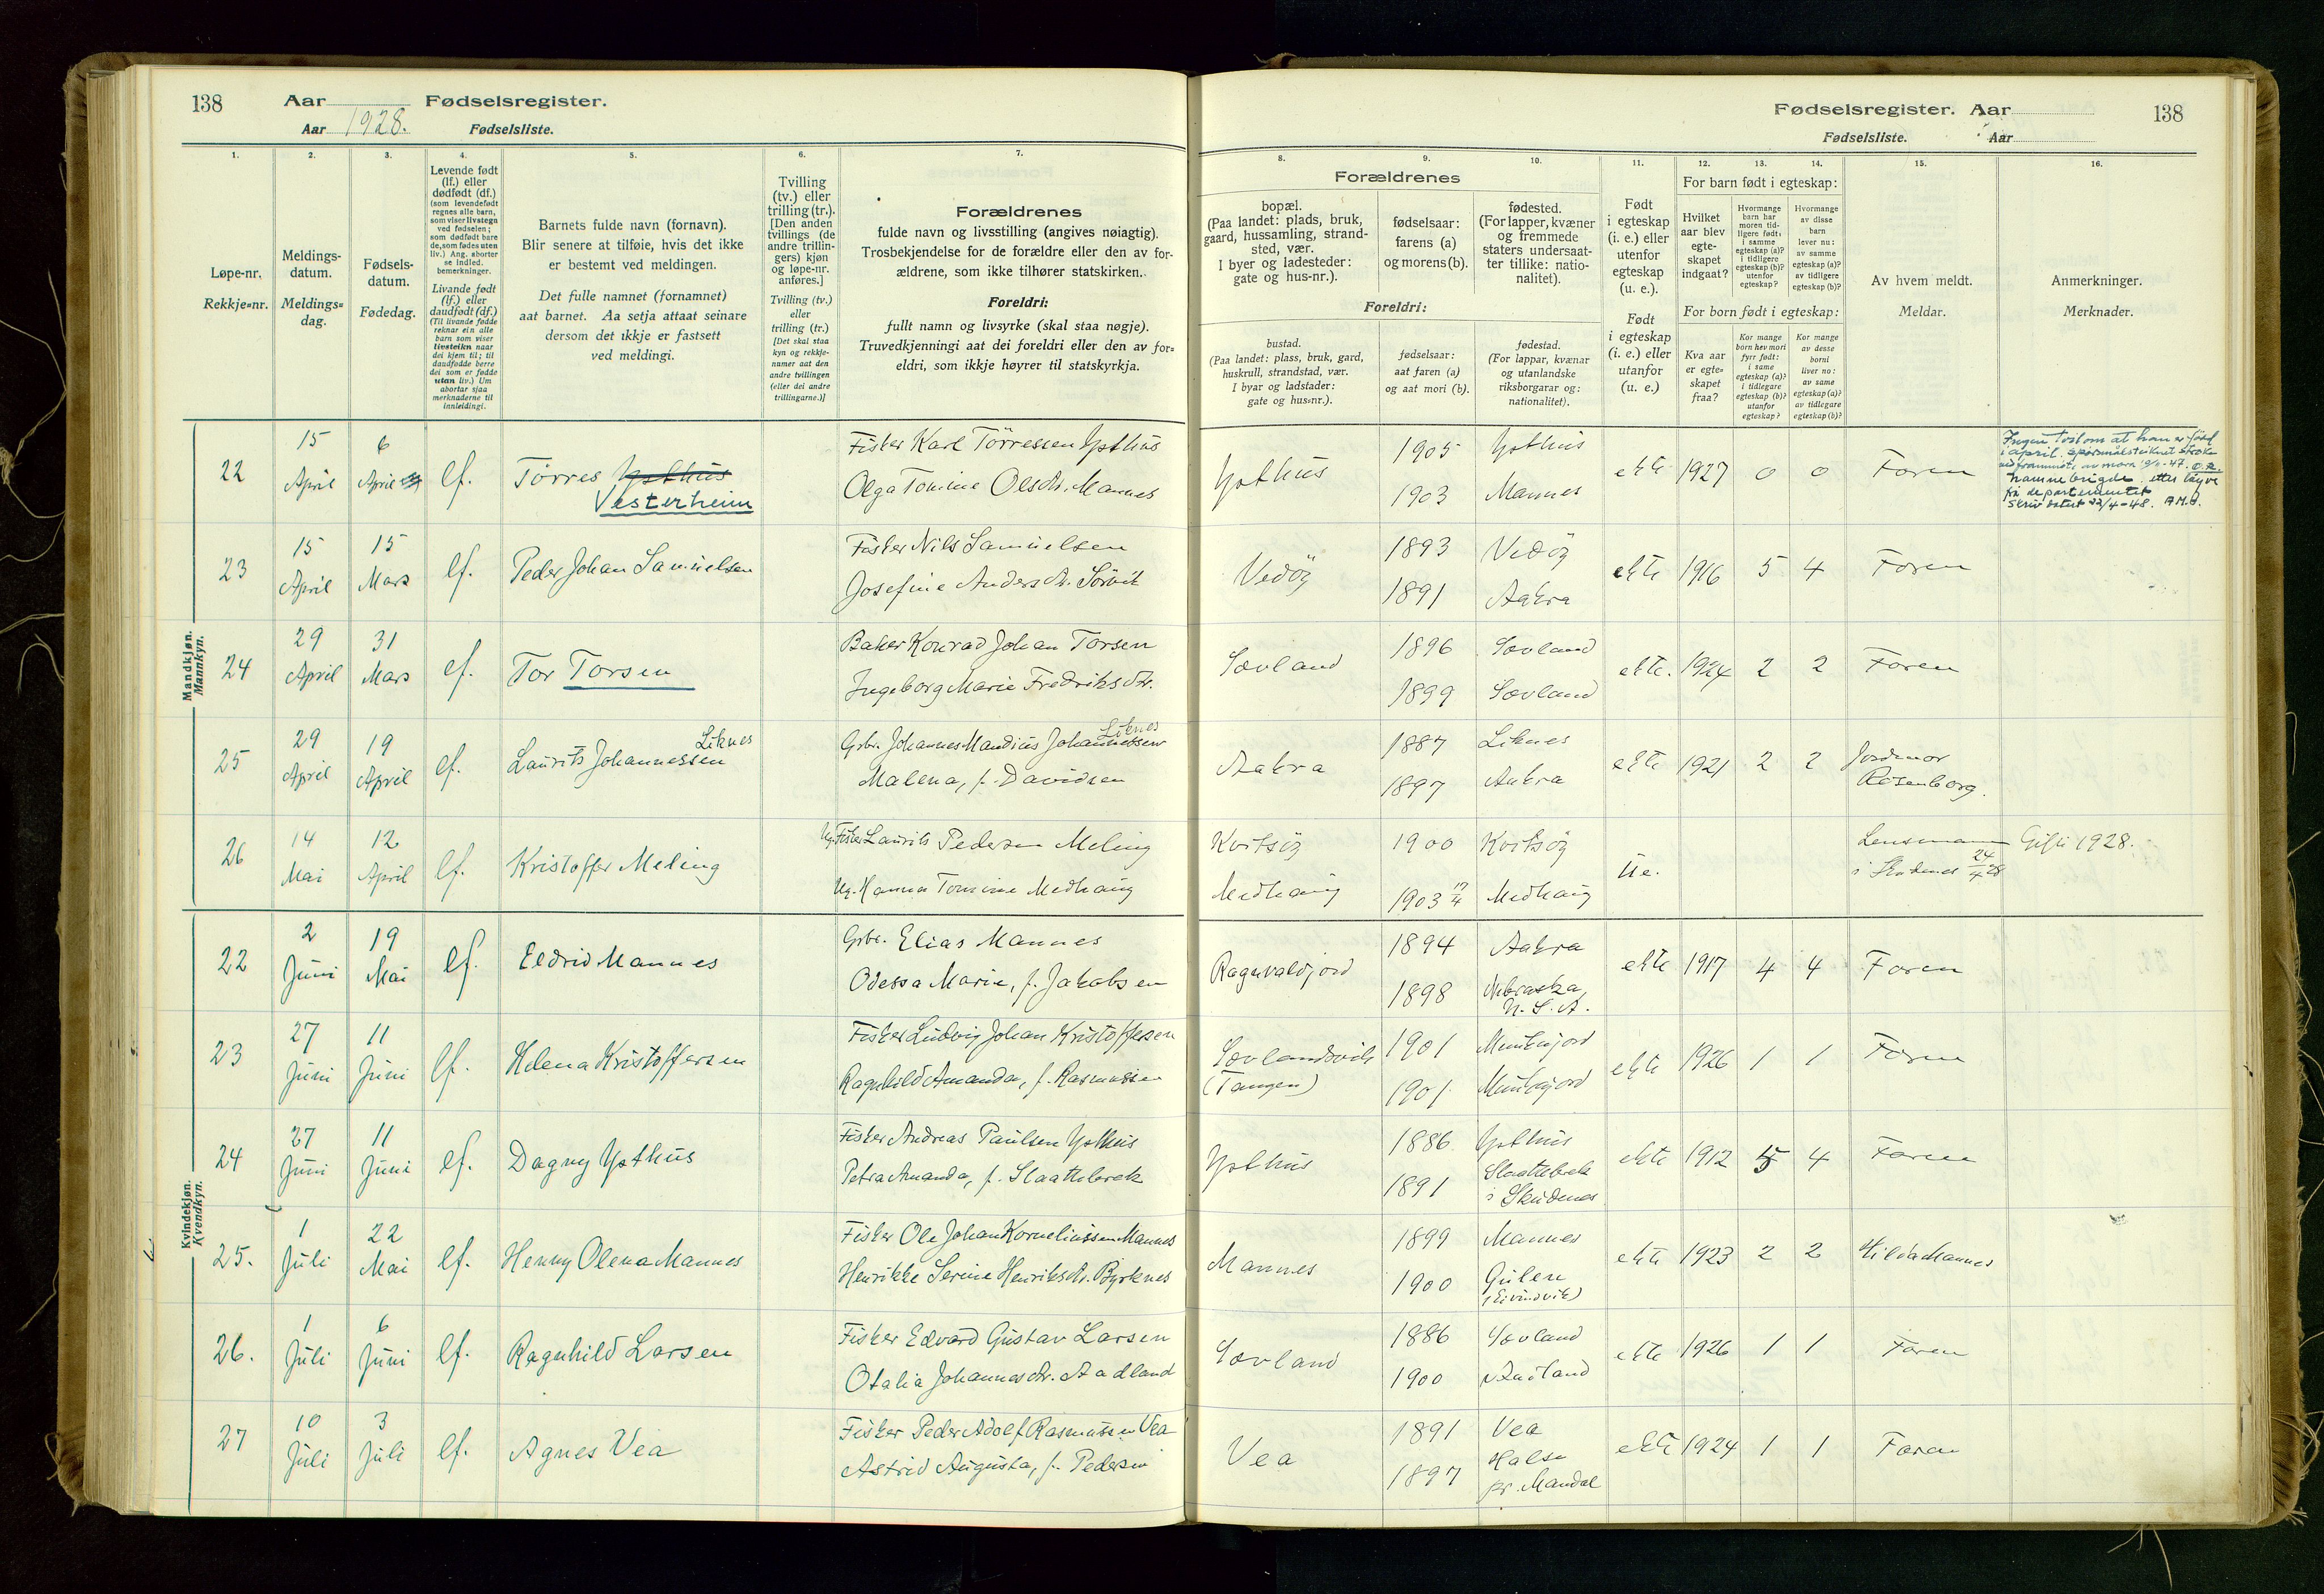 138 Aar Fødselsregister.
Aar 1928. Fødselsliste.
Fødselsregister. Aar 138
Fødselsliste. Aar
1.
Løpe-nr.
Rekkje=nr.
2.
Meldings-
datum.
Meldings=
dag.
3.
Fødsels-
datum.
Fødedag.
4.
Levende født
(lf.) eller
dødfødt (df.)
(som levendefødt
regnes alle barn,
som viser livstegn
ved fødselen;
som dødfødt bare
de, som fødes uten
liv.) Ang. aborter
se indled.
bemerkninger.
Livande født
(lf.) eller
daudfødt (df.)
(Til livande fødde
reknar ein alle
barn som viser
livsteikn naar
dei kjem til; til
daudfødde berre
dei som er fødde
utan liv.) Um
abortar sjaa
merknaderne til
innleidingi.
5.
Barnets fulde navn (fornavn).
Blir senere at tilføie, hvis det ikke
er bestemt ved meldingen.
Det fulle namnet (fornamnet)
aat barnet. Aa setja attaat seinare
dersom det ikkje er fastsett
ved meldingi.
6.
Tvilling
(tv.) eller
trilling (tr.).
[Den anden
tvillings (de
andre trillin-
gers) kjøn
og løpe-nr.
anføres.]
Tvilling (tv.)
eller
trilling (tr.)
[Det skal staa
kyn og rekkje-
numer aat den
andre tvillingen
(eller dei andre
trillingarne.)]
7.
Forældrenes
fulde navn og livsstilling (angives nøiagtig).
Trosbekjendelse for de forældre eller den av for-
ældrene, som ikke tilhører statskirken.
Foreldri:
fullt namn og livsyrke (skal staa nøgje).
Truvedkjenningi aat dei foreldri eller den av for=
eldri, som ikkje høyrer til statskyrkja.
Forældrenes
8.
bopæl.
(Paa landet: plads, bruk,
gaard, hussamling, strand-
sted, vær.
I byer og ladesteder:
gate og hus-nr.).
9.
fødselsaar:
farens (a)
og morens (b).
10.
fødested.
(For lapper, kvæner
og fremmede
staters undersaat-
ter tillike: natio-
nalitet).
Foreldri:
bustad.
(Paa landet: plass, bruk, gard,
huskrull, strandstad, vær.
I byar og ladstader:
gate og hus=nr.).
fødselsaar:
aat faren (a)
og aat mori (b).
fødestad.
(For lappar, kvænar
og utanlandske
riksborgarar og:
nationalitet).
11.
Født
i egteskap
(i. e.) eller
utenfor
egteskap
(u. e.).
Født
i egteskap
(i. e.) eller
utanfor
(u. e.)
12. 13. 14.
For barn født i egteskap:
Hvilket
aar blev
egte-
skapet
indgaat?
Hvormange
barn har
moren tid-
ligere født:
i samme
egteskap (a)?
i tidligere
egteskap (b)?
utenfor
egteskap?
Hvormange
av disse
barn
lever nu:
av samme
egteskap (a)?
av tidligere
egteskap (b)?
For born født i egteskap:
Kva aar
er egte=
skapet
fraa?
Kor mange
born hev mori
fyrr født:
i same
egteskap (a)?
i tidlegare
egteskap (b)?
utanfor
egteskap?
Kor mange
av desse
borni
liver no:
av same
egteskap (a)?
av tidlegare
egteskap (b)?
15.
Av hvem meldt.
Meldar.
16.
Anmerkninger.
Merknader.
Mandkjøn.
Mannkyn.
22 15 April 6 April lf. Tørres Ysthus
Vesterheim
Fisker Karl Tørressen Ysthus
Olga Tomine Olsdtr. Mannes
Ysthus 1905 1903 Ysthus Mannes ekte 1927 0 0 Faren
Ingen tvil om at han er fødd
i april. Spørsmålsteiknet stroke
namnebrigde etter løyve
frå departementet
skriv datert 22/4-48.
23 15 April 15 Mars lf. Peder Johan Samuelsen
Fisker Nils Samuelsen
Josefine Andersdtr. Sørvik
Vedöy 1893 1891 Vedöy Aakra ekte 1916 5 4 Faren
24 29 April 31 Mars lf. Tor Torsen
Baker Konrad Johan Torsen
Ingeborg Marie Fredriksdtr.
Sævland 1896 1899 Sævland Sævland ekte. 1924 2 2 Faren
25 29 April 19 April lf. Laurits Johannessen Liknes
Gbr. Johannes Mandius Johannessen Liknes
Malena, f. Davidsen
Aakra 1887 1897 Liknes Aakra ekte 1921 2 2 Jordmor
Rosenborg.
26 14 Mai 12 April lf. Kristoffer Meling
Ug. Fisker Laurits Pedersen Meling
Ug. Hanna Tomine Medhaug
Kvitsöy Medhaug 1900 1903 17/4 Kvitsöy Medhaug Ue. Lensmann
i Skudenes 24/4 28 Gifte 1928.
Kvindekjøn.
Kvendkyn.
22 2 Juni 19 Mai lf. Eldrid Mannes
Gbr. Elias Mannes
Odessa Marie, f. Jakobsen
Ragnvaldjord 1894 1898 Aakra Nebraska, U.S.A. ekte 1917 4 4 Faren
23 27 Juni 11 Juni lf. Helena Kristoffersen
Fisker Ludvig Johan Kristoffersen
Ragnhild Amanda, f. Rasmussen
Sævlandsvik
(Tangen) 1901 1901 Munkejord Munkejord ekte 1926 1 1 Faren
24 27 Juni 11 Juni lf. Dagny Ysthus
Fisker Andreas Paulsen Ysthus
Petra Amanda, f. Slaattebrek
Ysthus 1886 1891 Ysthus Slaattebrek
i Skudenes ekte 1912 5 4 Faren
25. 1 Juli 22 Mai lf. Henny Olena Mannes
Fisker Ole Johan Korneliussen Mannes
Henrikke Serine Henriksdtr. Byrknes
Mannes 1899 1900 Mannes Gulen
(Eivindvik) ekte 1923 2 2 Hilda Mannes
26. 1 Juli 6 Juni lf. Ragnhild Larsen
Fisker Edvard Gustav Larsen
Otalia Johannesdtr. Aadland
Sævland 1886 1900 Sævland Aadland ekte 1926 1 1 Faren
27 10 Juli 3 Juli lf. Agnes Vea
Fisker Peder Adolf Rasmussen Vea
Astrid Augusta, f. Pedersen
Vea 1891 1897 Vea Halse
pr. Mandal ekte 1924 1 1 Faren